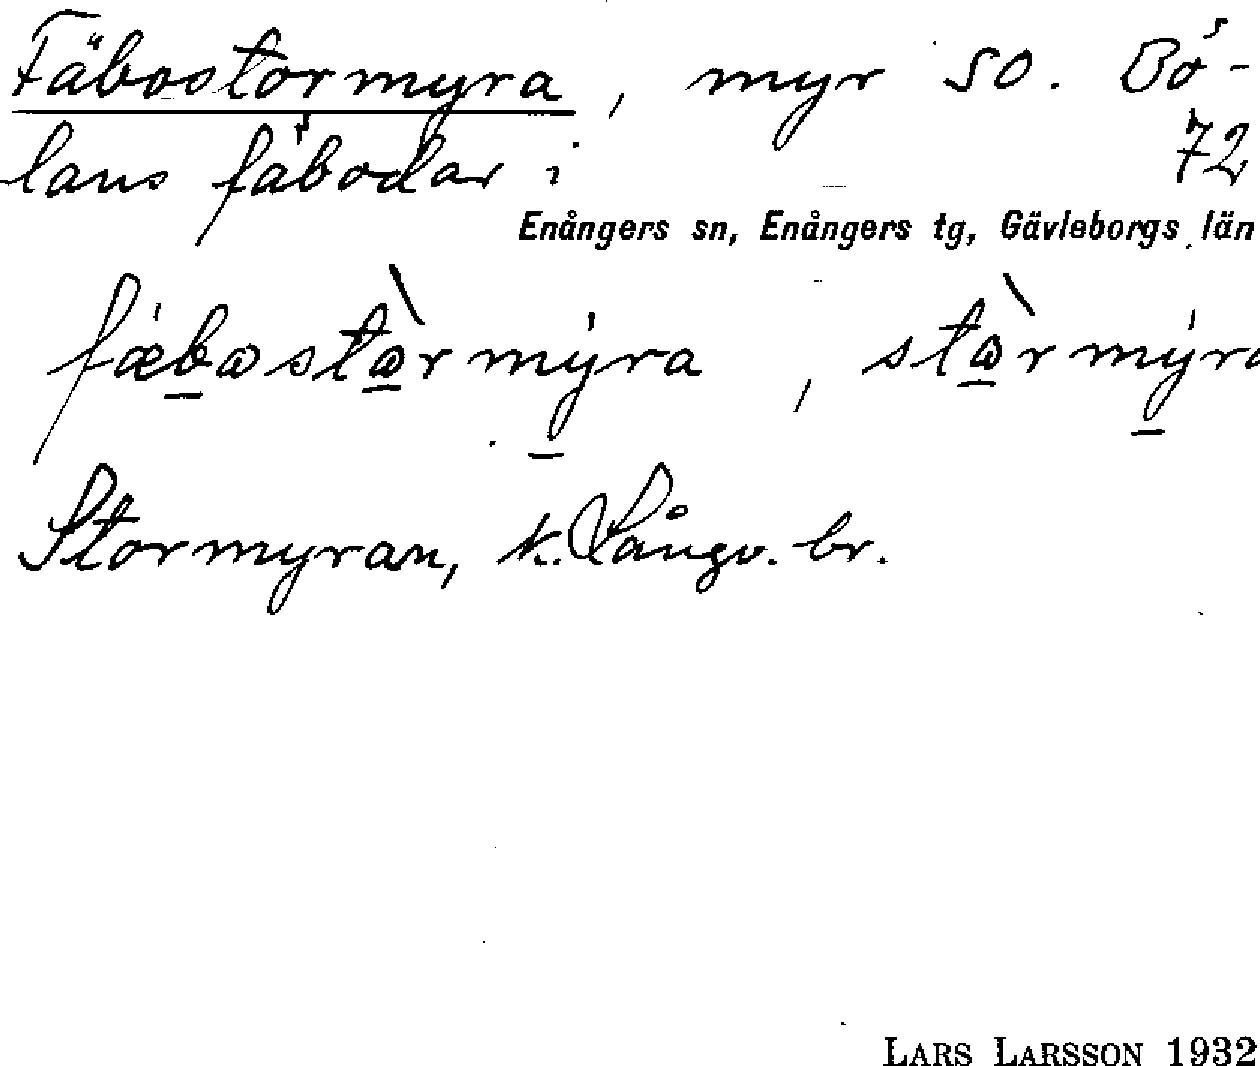 Fäbostormyra, myr SO. Bö-
lans fäbodar i 72
Enångers sn, Enångers tg, Gävleborgs län
fæbɷstɷ̀rmýra, stɷ̀rmýra
Stormyran, k. Långv. br.
LARS LARSSON 1932